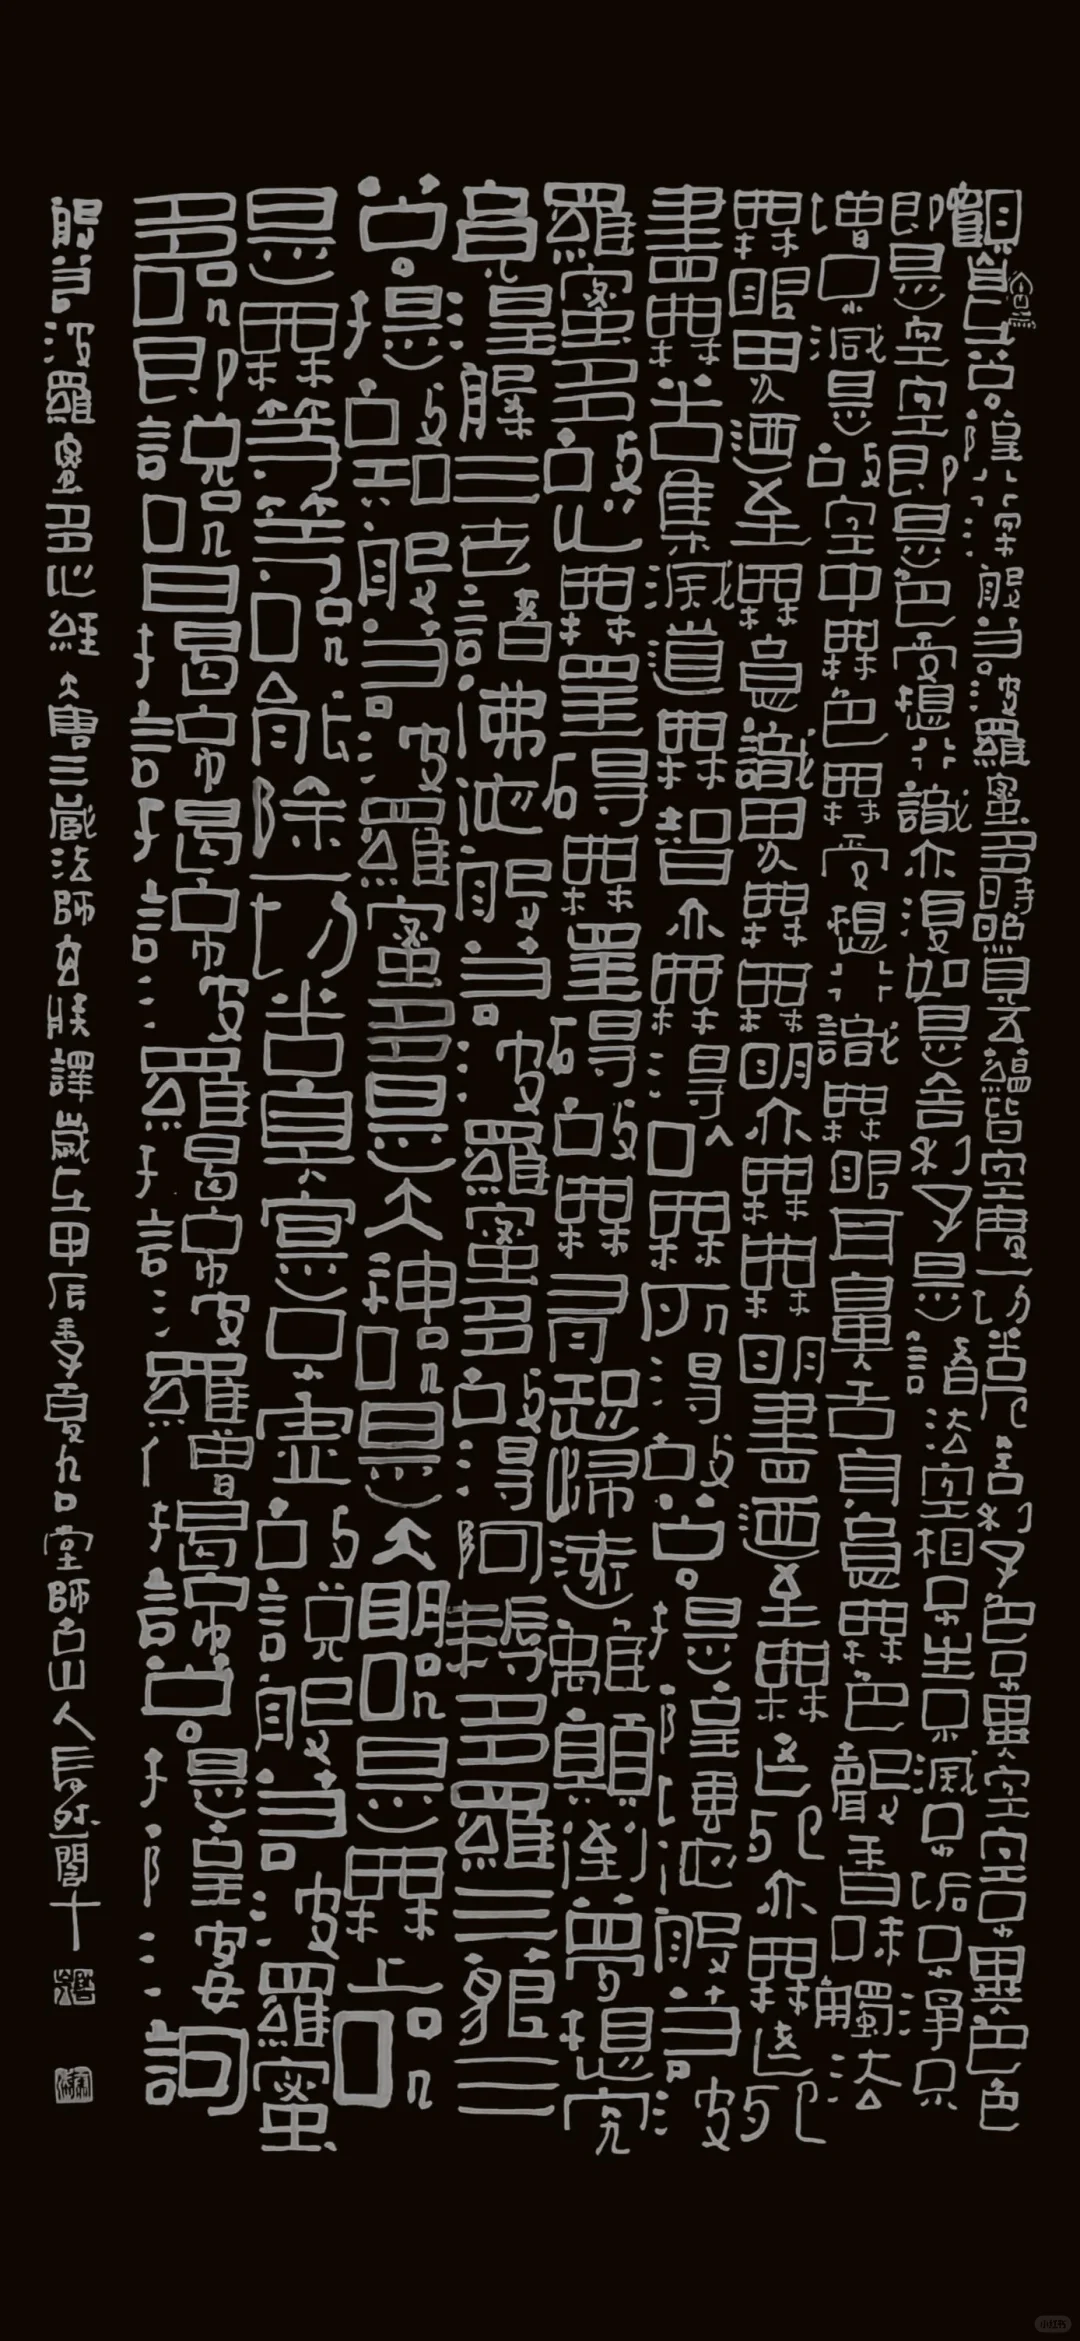 觀自在菩薩行深般若波羅蜜多時照見五蘊皆空度一切苦厄舍利子色不異空空不異色色
即是空空即是色受想行識亦復如是舍利子是諸法空相不生不滅不垢不淨不
增不減是故空中無色無受想行識無眼耳鼻舌身意無色聲香味觸法
無眼界乃至無意識界無無明亦無無明盡乃至無老死亦無老死
盡無苦集滅道無智亦無得以無所得故菩提薩埵依般若波
羅蜜多故心無罣礙無罣礙故無有恐怖遠離顛倒夢想究
竟涅槃三世諸佛依般若波羅蜜多故得阿耨多羅三藐三
菩提故知般若波羅蜜多是大神咒是大明咒是無上咒
是無等等咒能除一切苦真實不虛故說般若波羅蜜
多咒即說咒曰揭諦揭諦波羅揭諦波羅僧揭諦菩提薩婆訶
般若波羅蜜多心經大唐三藏法師玄奘譯歲在甲辰季夏九口堂師古山人
小红书